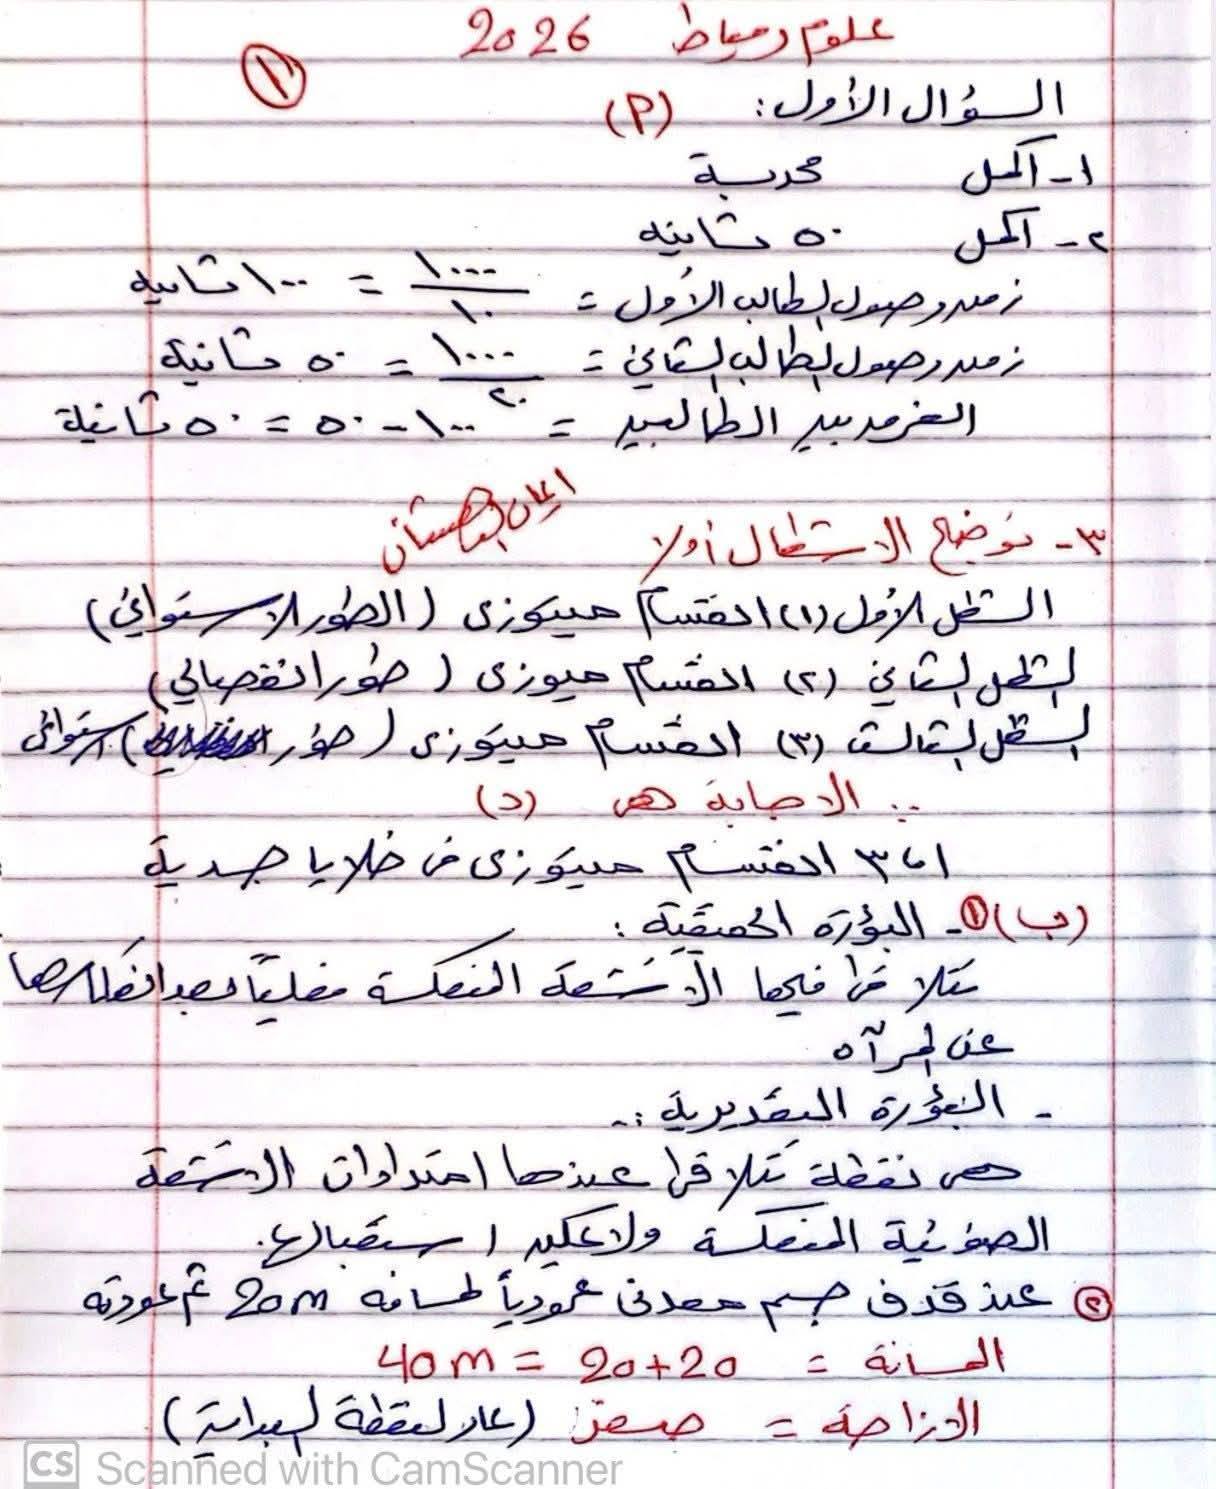 علوم دمياط 2026
١
السؤال الأول: (P)
١- اكمل محدبة
٢- اكمل ٥٠ ثانيه
زمن وصول الطالب الأول = ١٠٠٠/١٠ = ١٠٠ ثانيه
زمن وصول الطالب الثاني = ١٠٠٠/٢٠ = ٥٠ ثانية
الفرق بين الطالبين = ١٠٠ - ٥٠ = ٥٠ ثانية
٣- توضيح الاشكال أولا
الشكل الأول (١) انقسام ميتوزى (الطور الاستوائي)
الشكل الثاني (٢) انقسام ميوزى (طور انفصالي)
الشكل الثالث (٣) انقسام ميتوزى (طور استوائى)
∴ الاجابة هى (د)
١، ٣ انقسام ميتوزى فى خلايا جسدية
(ب) ١- البؤرة الحقيقية :
تتلاقى فيها الأشعة المنعكسة فعلياً بعد انعكاسها
عن المرآه
- البؤرة التقديرية :
هى نقطة تتلاقى عندها امتدادات الاشعة
الضوئية المنعكسة ولا يمكن استقبالها.
٢ عند قذف جسم معدنى عمودياً لمسافه 20m ثم عودته
المسافة = 20+20 = 40m
الازاحة = صفر (عاد لنقطة البداية)
CS Scanned with CamScanner